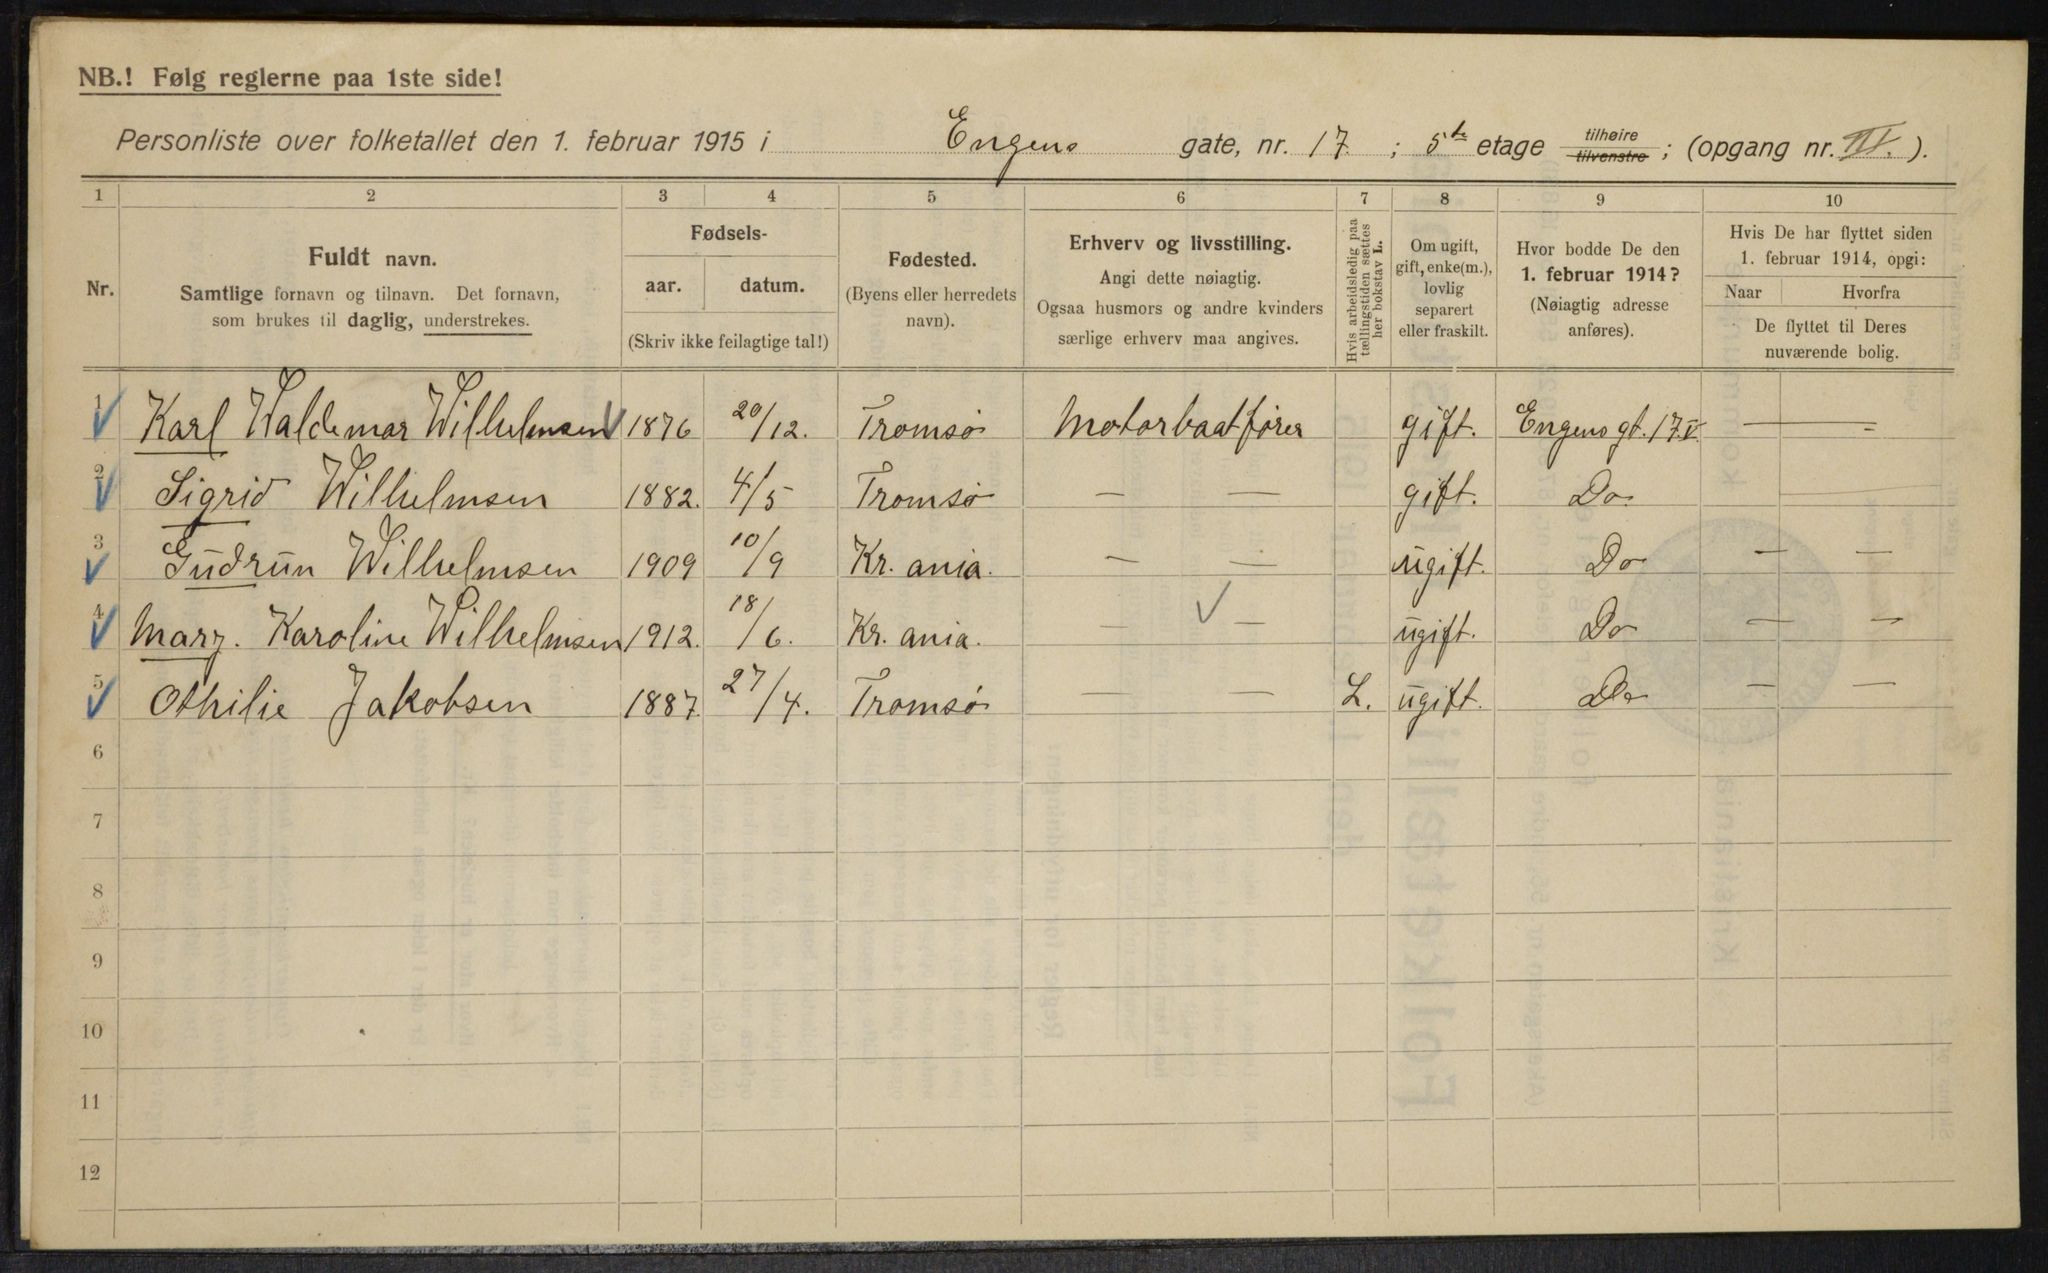 NB.! Følg reglerne paa 1ste side!
Personliste over folketallet den 1. februar 1915 i Engens gate, nr. 17. ; 5te etage tilhøire tilvenstre ; (opgang nr. III. ).
1 2 3 4 5 6 7 8 9 10
Nr.
Fuldt navn.
Samtlige fornavn og tilnavn. Det fornavn,
som brukes til daglig, understrekes.
Fødsels-
aar. datum.
(Skriv ikke feilagtige tal!)
Fødested.
(Byens eller herredets
navn).
Erhverv og livsstilling.
Angi dette nøiagtig.
Ogsaa husmors og andre kvinders
særlige erhverv maa angives.
Hvis arbeidsledig paa
tællingstiden sættes
her bokstav L.
Om ugift,
gift, enke(m.),
lovlig
separert
eller fraskilt.
Hvor bodde De den
1. februar 1914?
(Nøiagtig adresse
anføres).
Hvis De har flyttet siden
1. februar 1914, opgi:
Naar Hvorfra
De flyttet til Deres
nuværende bolig.
1 Karl Waldemar Wilhelmsen 1876 20/12. Tromsø Motorbaatfører gift. Engens gt. 17.V — -
2 Sigrid Wilhelmsen 1882. 4/5 Tromsø — — gift. Do
3 Gudrun Wilhelmsen 1909 10/9 Kr. ania. — — ugift. Do — —
4 Marg. Karoline Wilhelmsen 1912. 18/6. Kr. ania. — — ugift. Do — —
5 Othilie Jakobsen 1887. 27/4. Tromsø — — L. ugift. Do — —
6
7
8
9
10
11
12